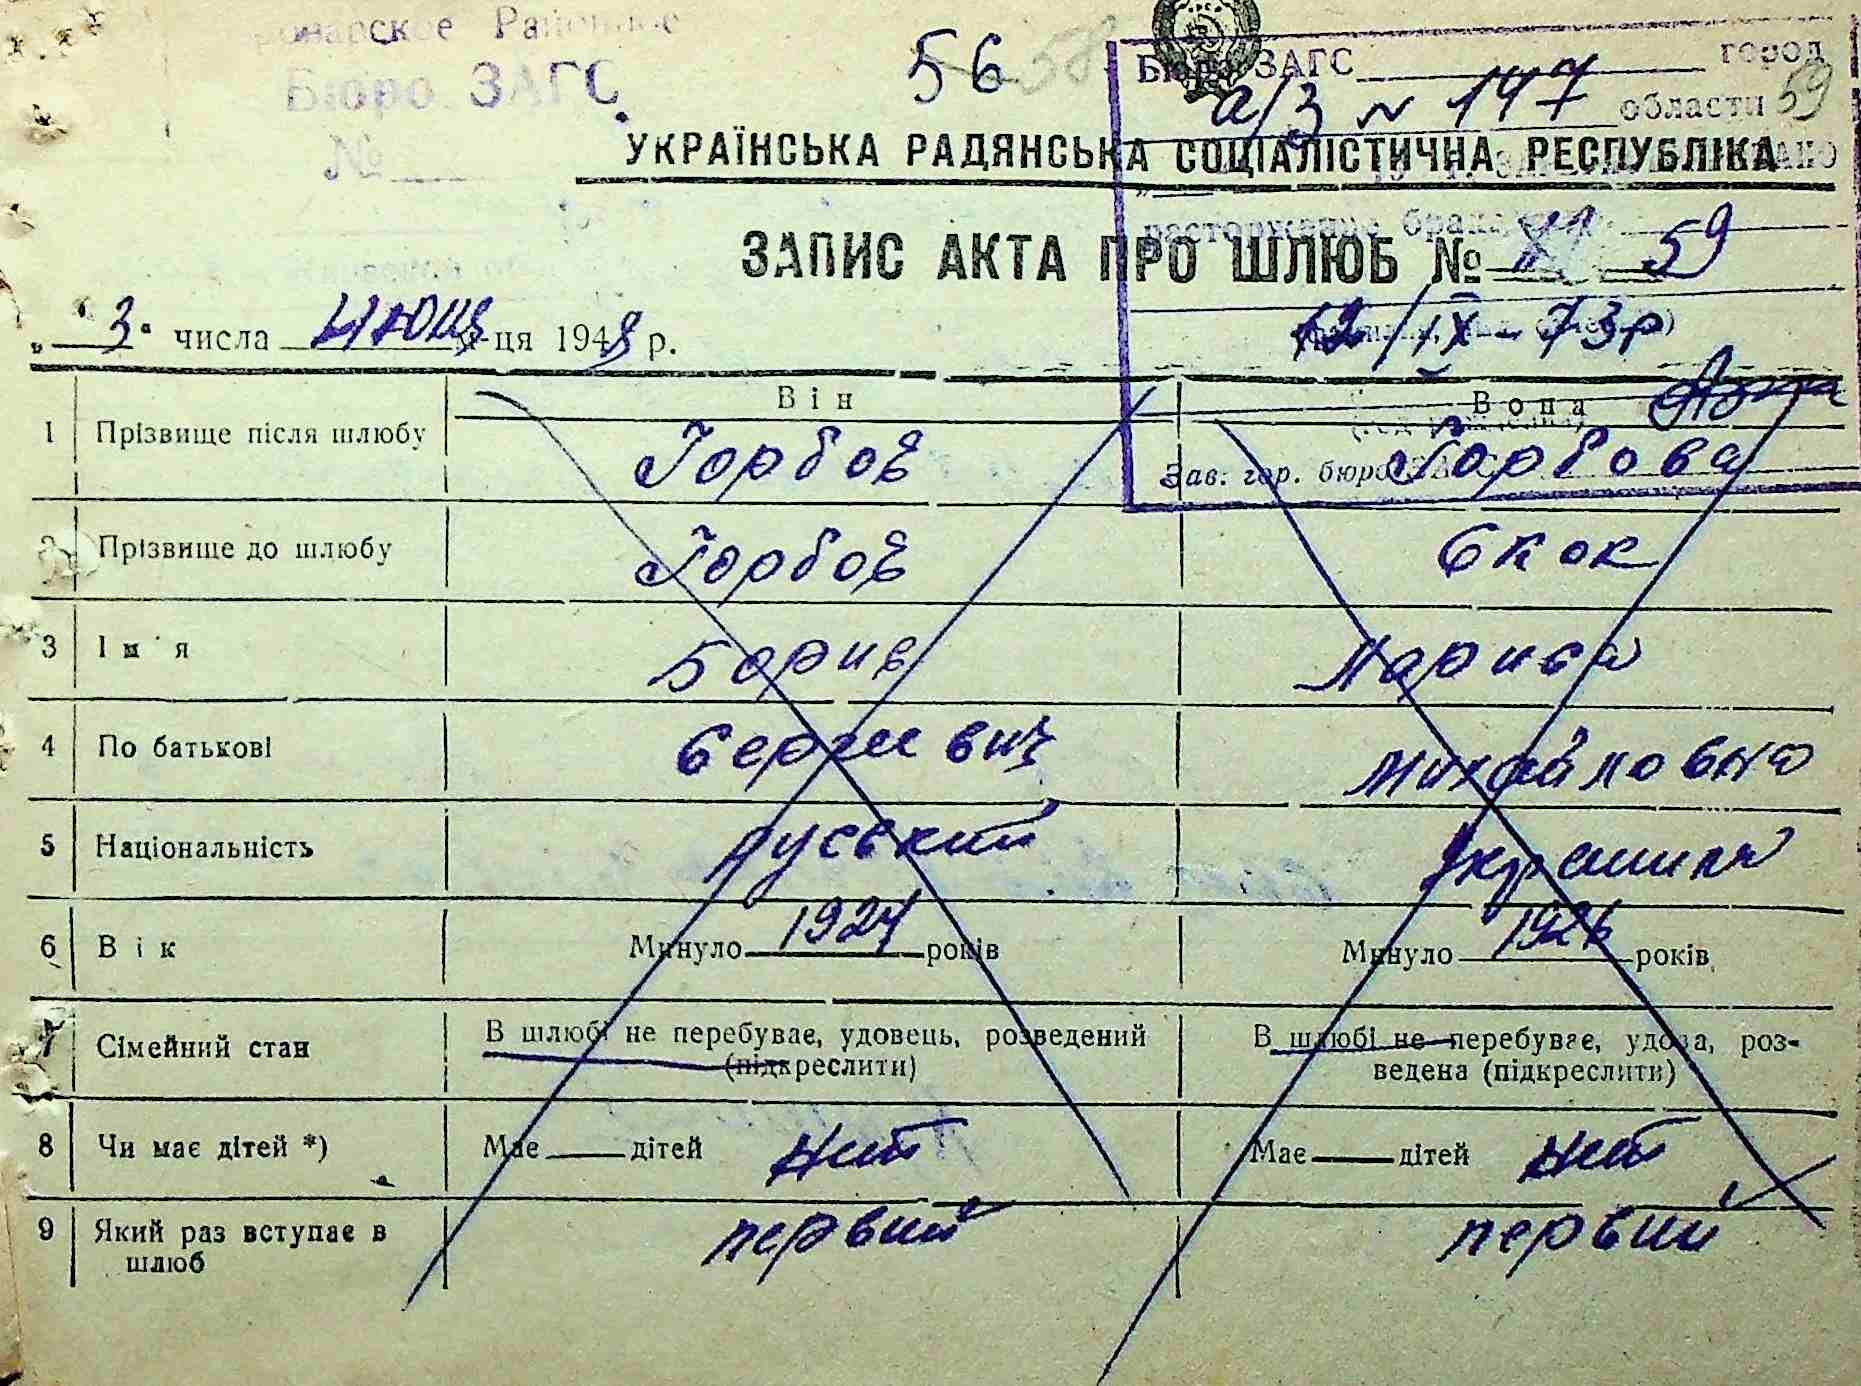 Бюро ЗАГС
№
56
58
59
Бюро ЗАГС город
а/з № 147 области
УКРАЇНСЬКА РАДЯНСЬКА СОЦІАЛІСТИЧНА РЕСПУБЛІКА
расторжение брака
ЗАПИС АКТА ПРО ШЛЮБ № 59
„3" числа июня м-ця 1948 р.
12/IX-73р
Він Вона
1 Прізвище після шлюбу Горбов Горбова
Зав. гор. бюро ЗАГС
2 Прізвище до шлюбу Горбов Скок
3 Ім'я Борис Лариса
4 По батькові Сергеевич Михайловна
5 Національність руський Украинка
6 Вік Минуло 1924 років Минуло 1926 років
7 Сімейний стан В шлюбі не перебуває, удовець, розведений (підкреслити) В шлюбі не перебуває, удова, роз-
ведена (підкреслити)
8 Чи має дітей *) Має дітей нет Має дітей нет
9 Який раз вступає в первий первий
шлюб